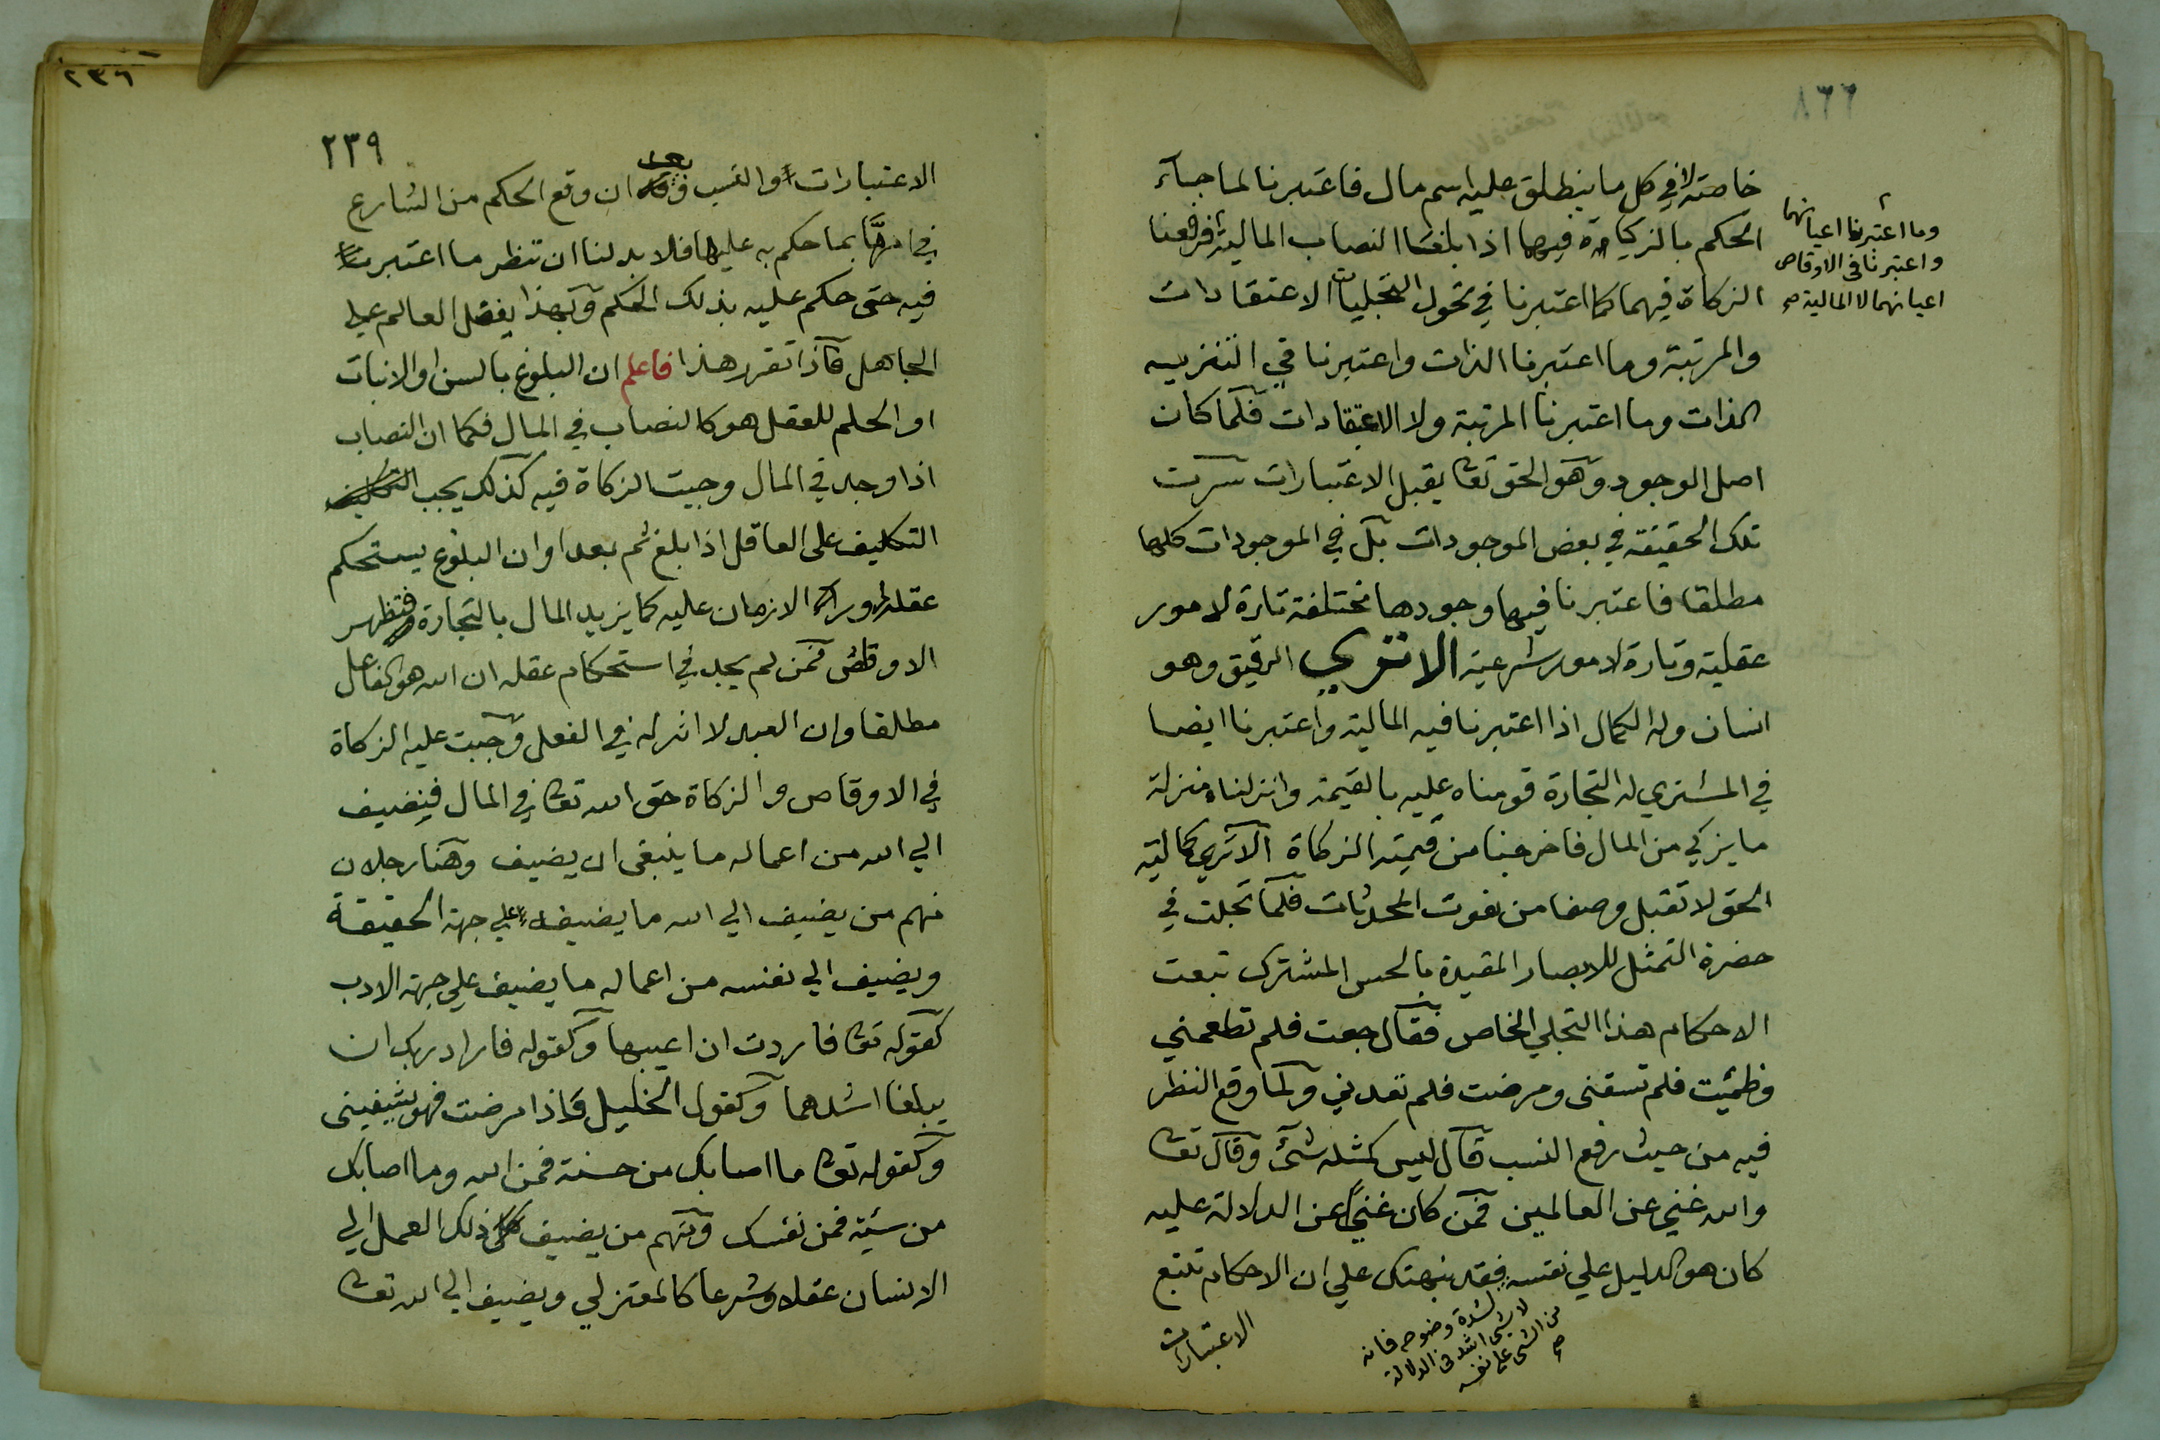 ٨٦٦
خاصة لا في كل ما ينطلق عليه اسم مال فاعتبرنا لما جآء
الحكم بالزكاة فيهما اذا بلغا النصاب المالية فرفعنا
الزكاة فيهما كما اعتبرنا في تحول التجليات الاعتقادات
والمرتبة وما اعتبرنا الذات واعتبرنا في التنزيه
الذات وما اعتبرنا المرتبة ولا الاعتقادات فلما كان
اصل الوجود وهو الحق تعا يقبل الاعتبارات سرت
تلك الحقيقة في بعض الموجودات بل في الموجودات كلها
مطلقا فاعتبرنا فيها وجودها مختلفة تارة لامور
عقلية وتارة لامور شرعية الا تري الرقيق وهو
انسان وله الكمال اذا اعتبرنا فيه المالية واعتبرنا ايضا
في المشتري له التجارة قومناه عليه بالقيمة وانزلناه منزلة
ما يزكي من المال فاخرجنا من قيمته الزكاة الا تري كمالية
الحق لا تقبل وصفا من نعوت المحدثات فلما تجلت في
حضرة التمثل للابصار المقيدة بالحس المشترك تبعت
الاحكام هذا التجلي الخاص فقال جعت فلم تطعمني
وظمئت فلم تسقني ومرضت فلم تعدني ولما وقع النظر
فيه من حيث رفع النسب قال ليس كمثله شئ وقال تعا
والله غني عن العالمين فمن كان غنيا عن الدلالة عليه
كان هو الدليل علي نفسه فقد نبهتك علي ان الاحكام تتبع
الاعتبارات
وما اعتبرنا اعيانهما
واعتبرنا في الاوقاص
اعيانهما لا المالية صح
لشدة وضوحه فانه
لا شئ اشد في الدلالة
من الشئ علي نفسه
صح
٢٣٦
٢٣٩
الاعتبارات والنسب بعد ان وقع الحكم من الشارع
في امر ما بما حكم به عليها فلا بد لنا ان ننظر ما اعتبر
فيه حتي حكم عليه بذلك الحكم وبهذا يفضل العالم علي
الجاهل فاذا تقرر هذا فاعلم ان البلوغ بالسن او الانبات
او الحلم للعقل هو كالنصاب في المال فكما ان النصاب
اذا وجد في المال وجبت الزكاة فيه كذلك يجب
التكليف علي العاقل اذا بلغ ثم بعد اوان البلوغ يستحكم
عقله لمرور الازمان عليه كما يزيد المال بالتجارة فتظهر
الاوقاص فمن لم يجد في استحكام عقله ان الله هو الفاعل
مطلقا وان العبد لا اثر له في الفعل وجبت عليه الزكاة
في الاوقاص والزكاة حق الله تعا في المال فيضيف
الي الله من اعماله ما ينبغي ان يضيف وهنا رجلان
منهم من يضيف الي الله ما يضيف علي جهة الحقيقة
ويضيف الي نفسه من اعماله ما يضيف علي جهة الادب
كقوله تعا فاردت ان اعيبها وكقوله فاراد ربك ان
يبلغا اشدهما وكقول الخليل واذا مرضت فهو يشفيني
وكقوله تعا ما اصابك من حسنة فمن الله وما اصابك
من سيئة فمن نفسك ومنهم من يضيف كل ذلك العمل الي
الانسان عقلا وشرعا كالمعتزلي ويضيف الي الله تعا